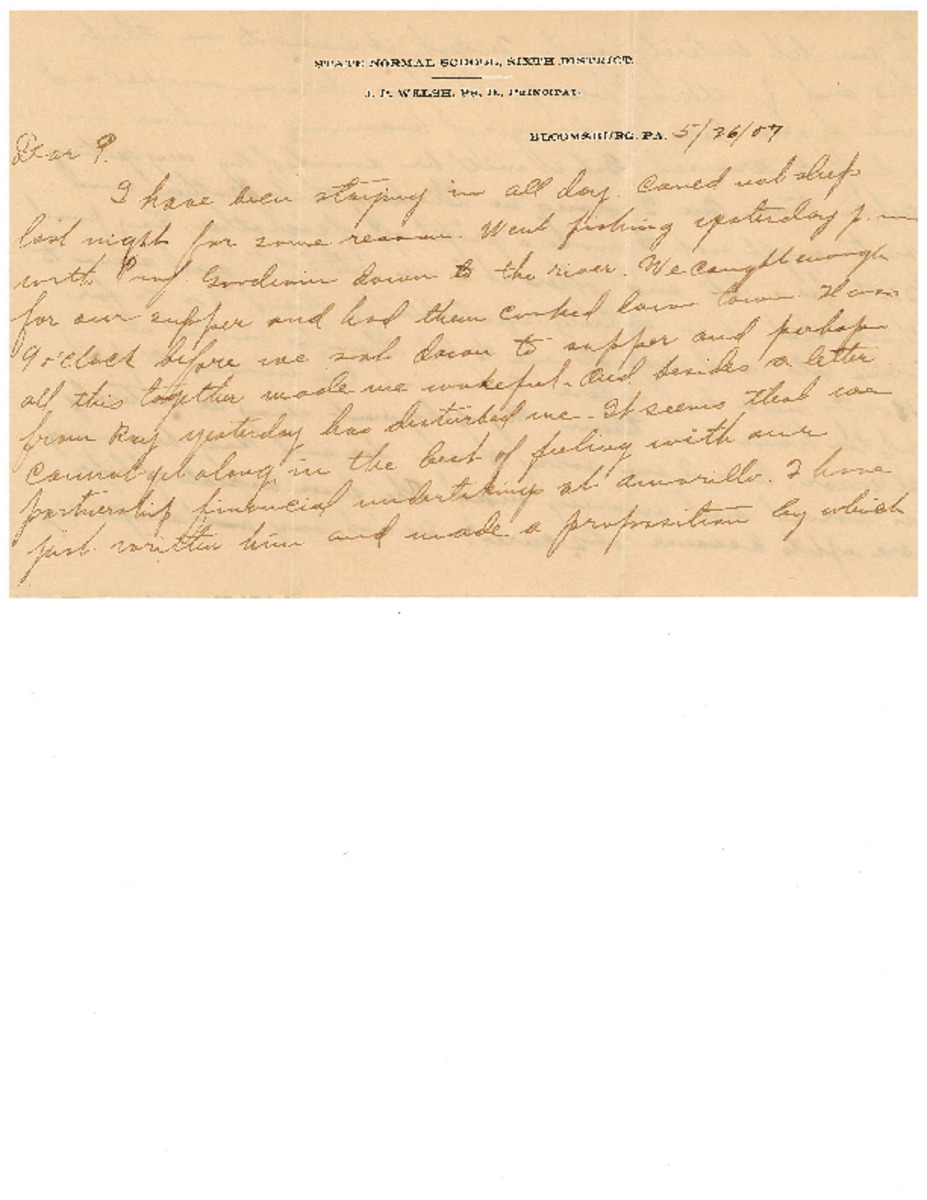 STATE NORMAL SCHOOL, SIXTH DISTRICT.
J. P. WELSH, PH. D., PRINCIPAL.
BLOOMSBURG, PA. 5/26/07
Dear P.
I have been staying in all day. Could not sleep
last night for some reason. Went fishing yesterday p.m
with Prof. down to the river. We caught enough
for our supper and had them cooked down town. It was
9 o'clock before we sat down to supper and perhaps
all this together made me wakeful. And besides a letter
from Ray yesterday has disturbed me. It seems that we
cannot get along in the best of feeling with our
partnership financial undertaking at Amarillo. I have
just written him and made a proposition by which